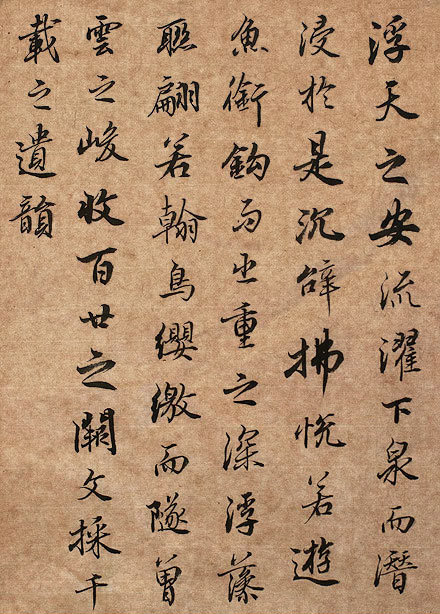 浮天之安流濯下泉而潛
浸於是沉辭拂悅若遊
魚銜鈎而出重之深浮藻
聯翩若翰鳥纓繳而隧曾
雲之峻收百世之闕文採千
載之遺韻